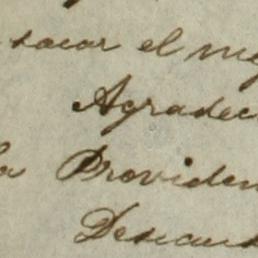 sacar el me
Agradec
la Providen
Descans